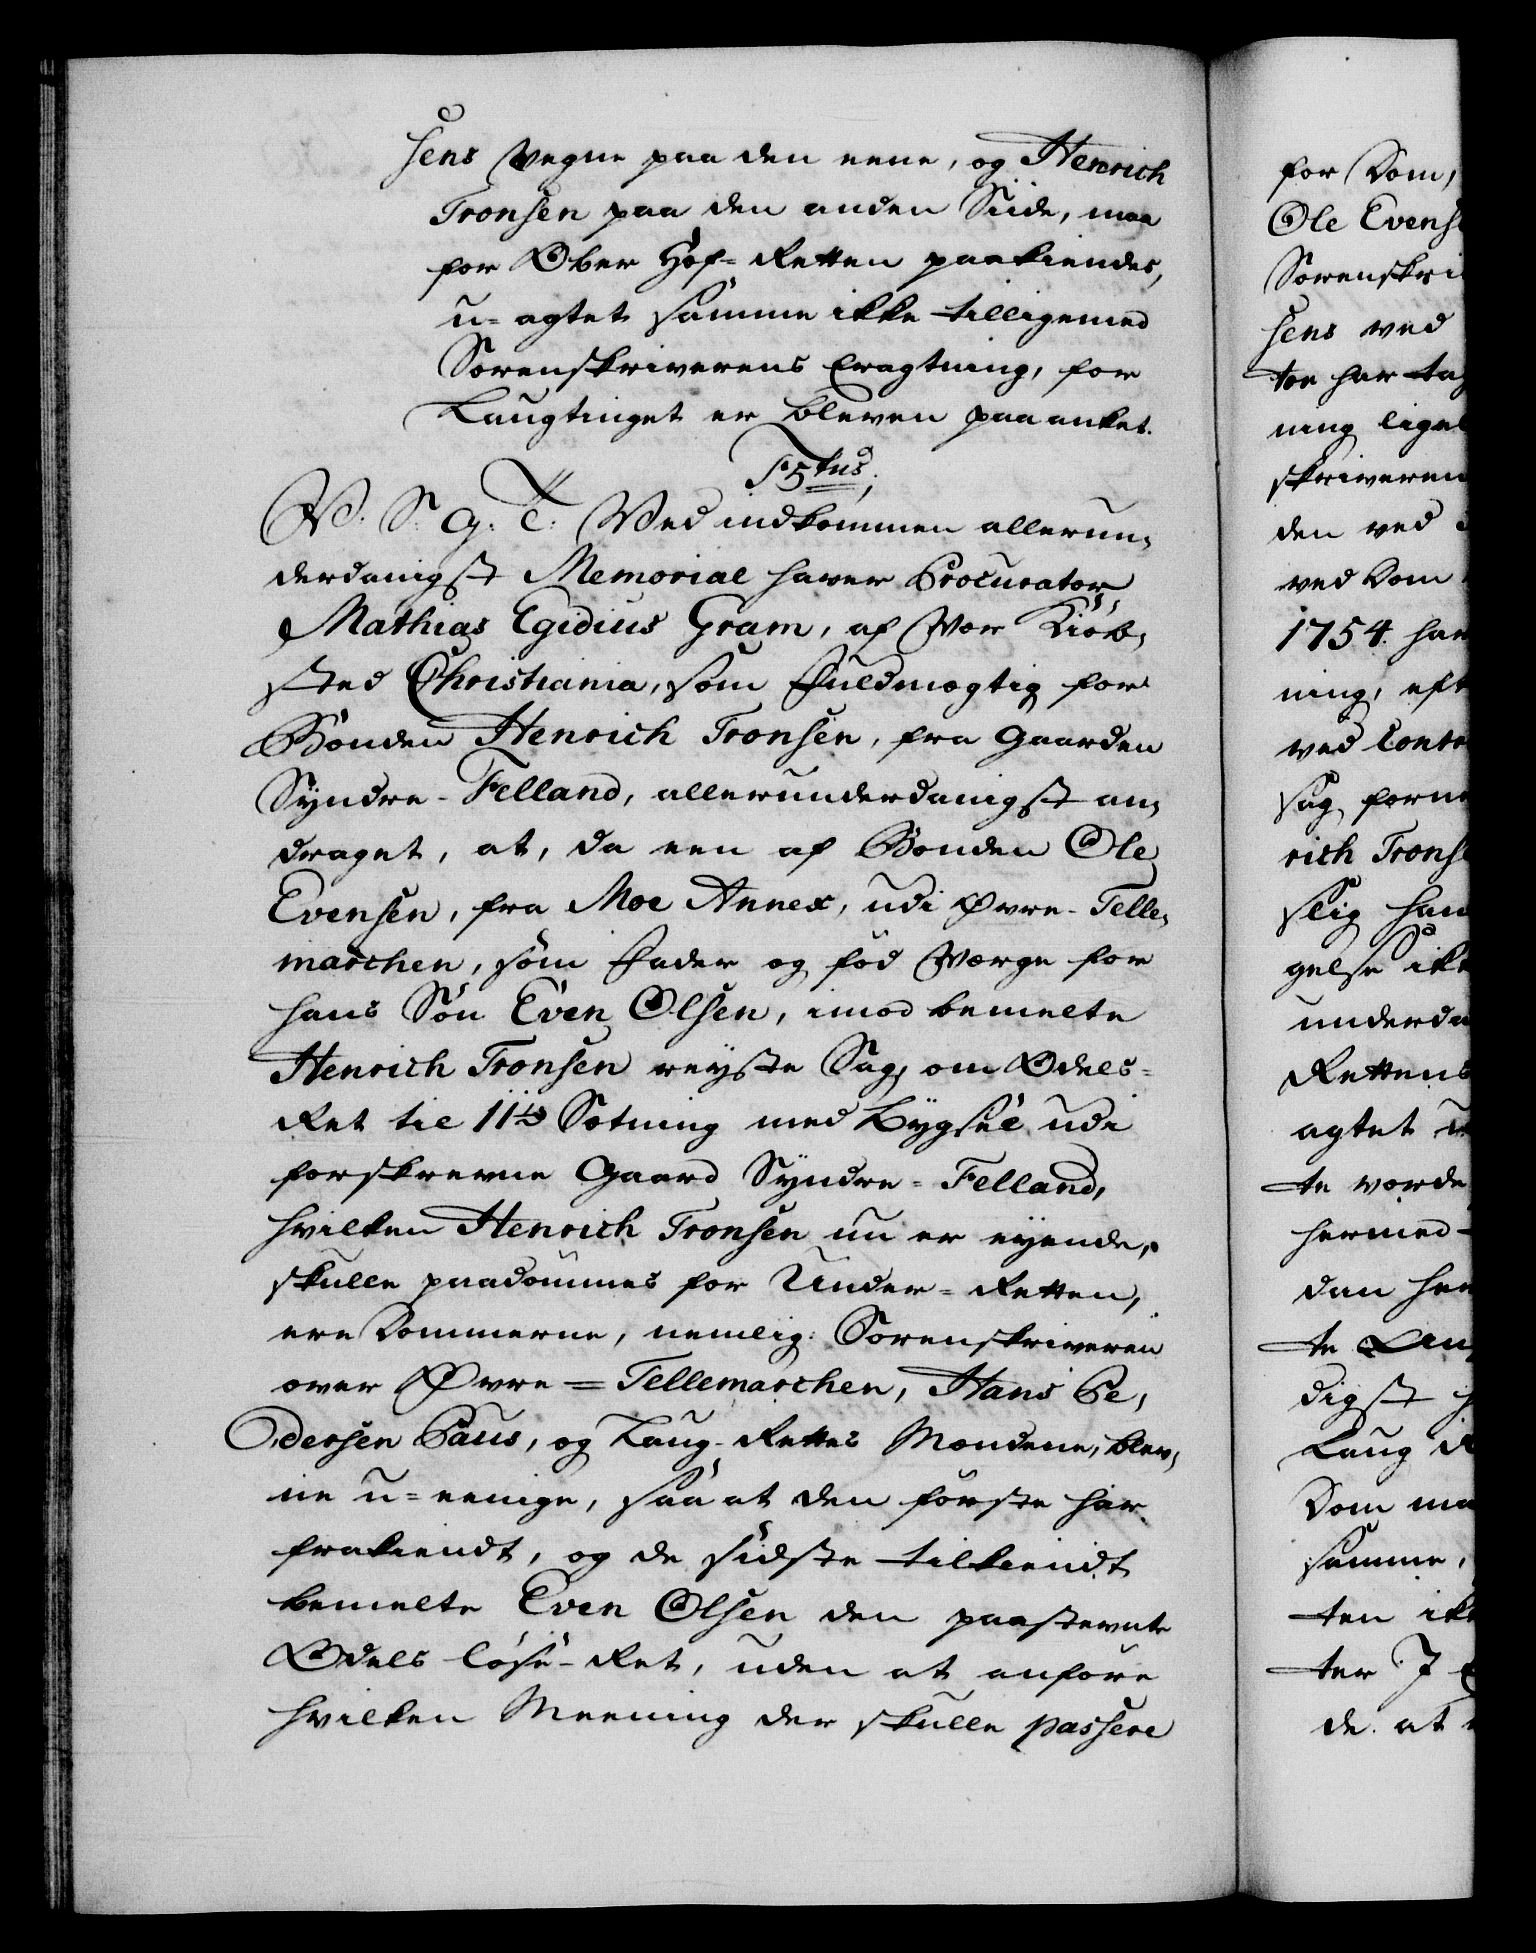 sens Vegne paa den eene, og Henrich
Tronsen paa den anden Siide, maa
for Ober Hof=Retten paakiendes,
u=agtet samme ikke tilligemed
Sorenskriverens Eragtning, for
Laugtinget er bleven paaanket.
F5tus;
V. S. G. T: Ved indkommen allerun,
derdanigst Memorial haver Procurator
Mathias Egidius Gram, af Vor Kiöb,
sted Christiania, som Fuldmægtig for
Bonden Henrich Tronsen, fra Gaarden
Syndre-Felland, allerunderdanigst an,
draget, at, da een af Bonden Ole
Evensen, fra Moe Annex, udi Øvre-Telle,
marchen, som Fader og född Værge for
hans Sön Even Olsen, imod bemelte
Henrich Tronsen reyste Sag, om Odels=
Ret til 11 Sætning med Bygsel udi
forskrevne Gaard Syndre=Felland,
hvilken Henrich Tronsen nu er eyende,
skulle paadömmes for Under=Retten,
ere Dommerne, nemlig: Sorenskriveren
over Øvre=Tellemarchen, Hans Pe,
dersen Paus, og Laug-Rettes Mændene, blev,
ne u=eenige, saa at den förste har
frakiendt, og de sidste tilkiendt
bemelte Even Olsen den paastevnte
Odels löse-Ret, uden at anföre
hvilken Meening der skulle passere
for Dom,
Ole Evens
Sorenskri
sens ved
tor har tag
ning ligel
skriveren
den ved
ved Dom
1754. har
ning, eft
ved Contr
sag, forne
rich Trons
slig han
gelse ikk
underda
Rettens
agtet
te vorde
hermed
dan her
te
digst
Laug
Dom ma
samme,
ten ikk
ter 7
de. at